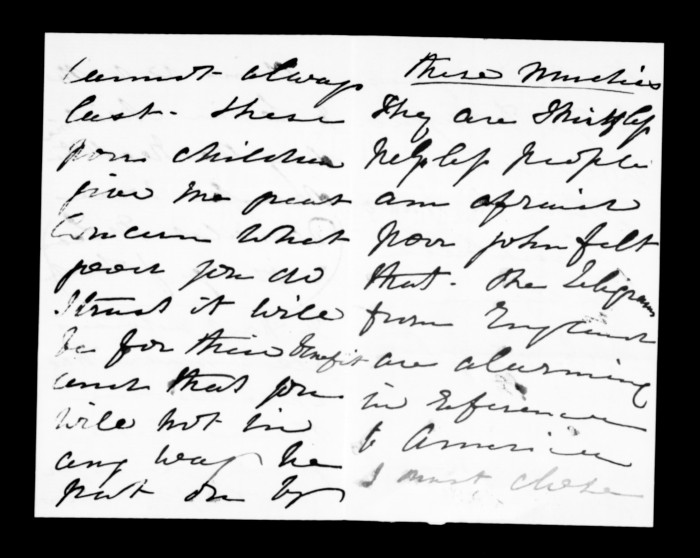 cannot always
last. these
poor children
give me great
Concern What
ever you do
I trust it will
be for their benefit
and that you
will not in
any way be
put on by
these Murchies
They are Thriftless
helpless people
am afraid
poor John felt
that. The Telegrams
from England
are alarming
in reference
to America
I must close